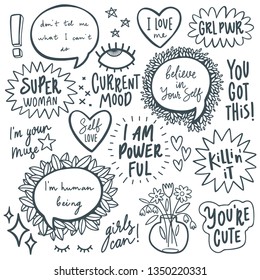 don't tell me
what I can't
do
I LOVE
me
GRL PWR
SUPER
WOMAN
CURRENT
MOOD
believe
in
Your Self
YOU
GOT
THIS!
I'm your
muse
Self
LOVE
I AM
POWER
FUL
KILLIN'
IT
I'm human
being
girls
can!
YOU'RE
CUTE
1350220331